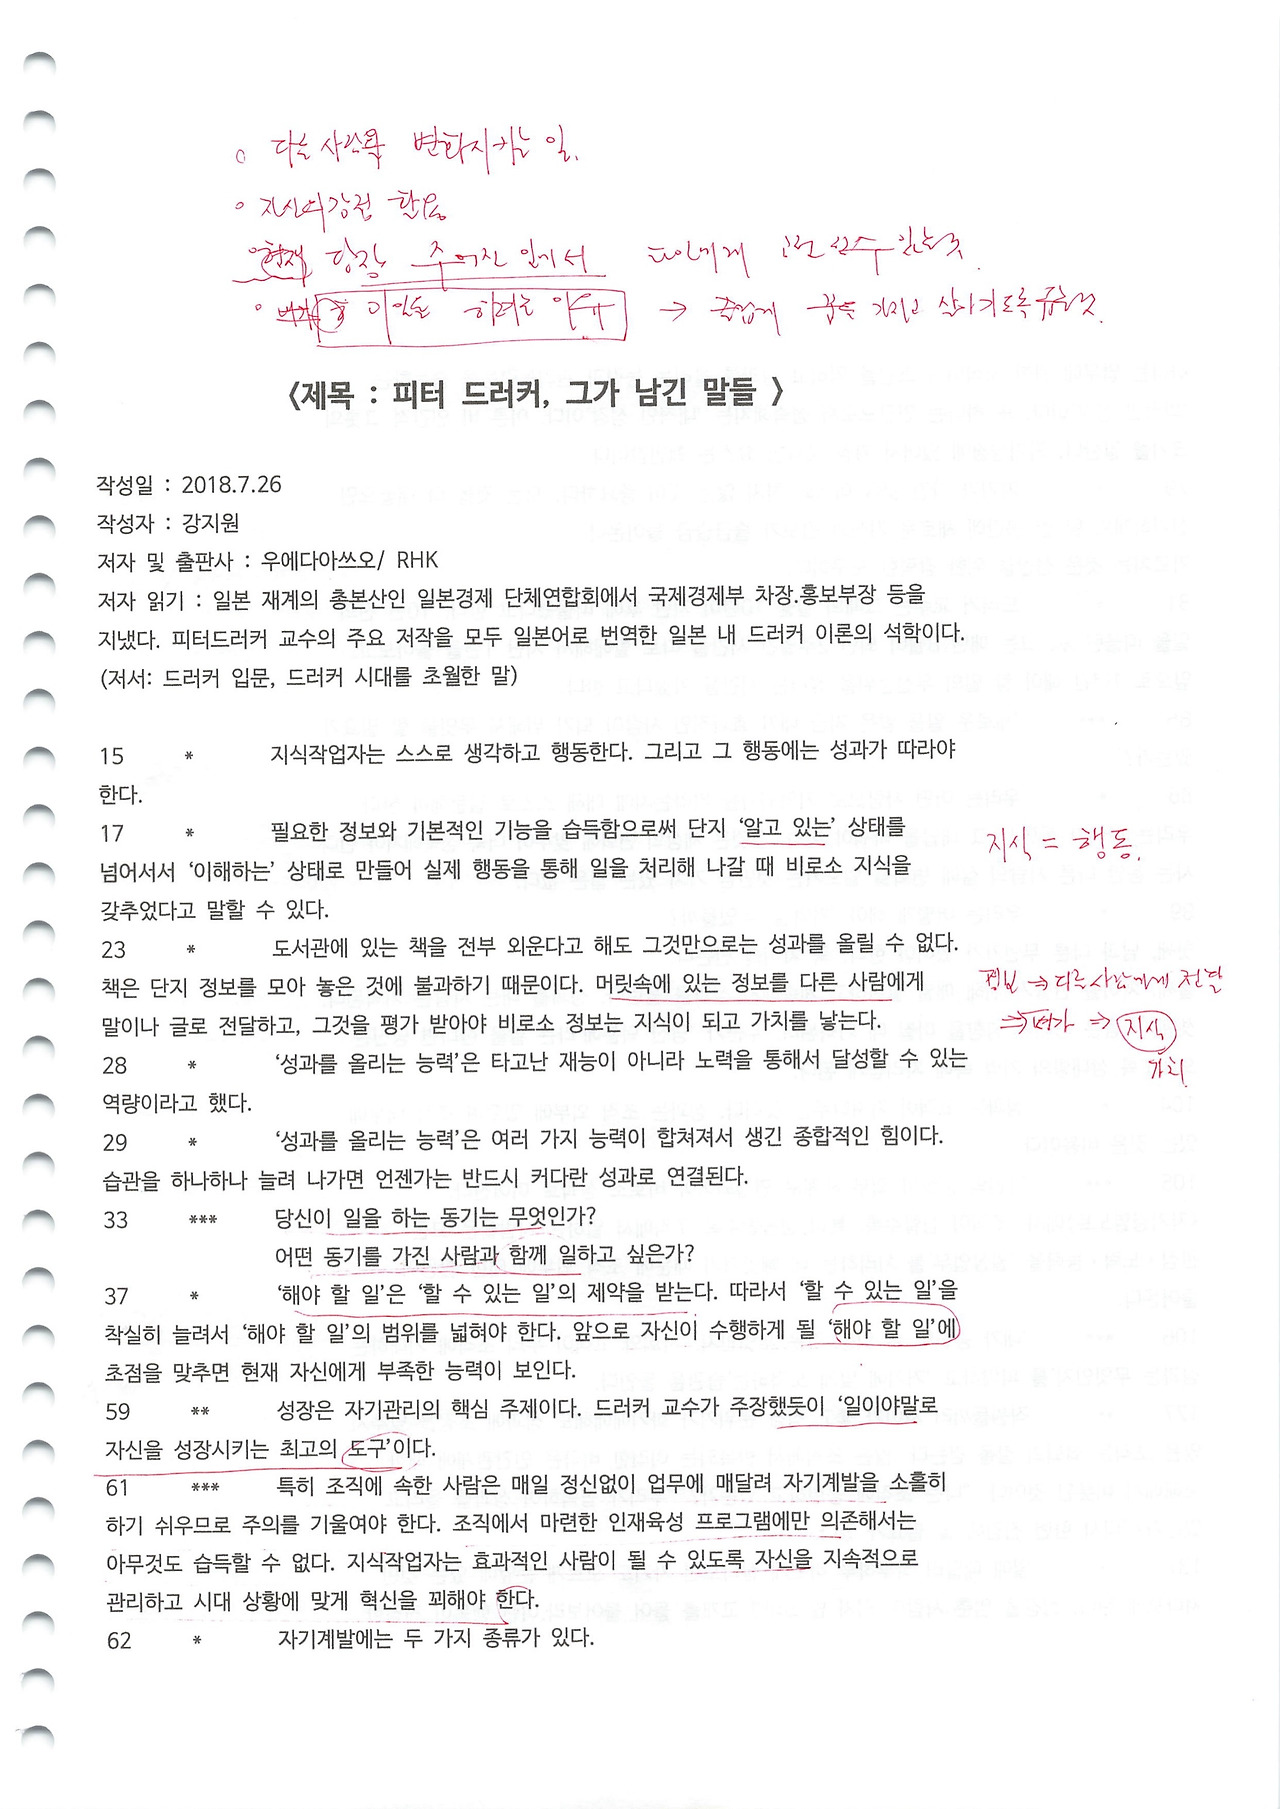 ○ 다른 사람을 변화시키는 일.
○ 자신의 강점 활용
○ 현재 당장 주어진 일에서
이 일을 하려는 이유 → 즐겁게 꿈을 가지고 살아가도록
<제목 : 피터 드러커, 그가 남긴 말들 >
작성일 : 2018.7.26
작성자 : 강지원
저자 및 출판사 : 우에다아쓰오/ RHK
저자 읽기 : 일본 재계의 총본산인 일본경제 단체연합회에서 국제경제부 차장.홍보부장 등을
지냈다. 피터드러커 교수의 주요 저작을 모두 일본어로 번역한 일본 내 드러커 이론의 석학이다.
(저서: 드러커 입문, 드러커 시대를 초월한 말)
15 * 지식작업자는 스스로 생각하고 행동한다. 그리고 그 행동에는 성과가 따라야
한다.
17 * 필요한 정보와 기본적인 기능을 습득함으로써 단지 ‘알고 있는’ 상태를
넘어서서 ‘이해하는’ 상태로 만들어 실제 행동을 통해 일을 처리해 나갈 때 비로소 지식을
갖추었다고 말할 수 있다.
지식 = 행동.
23 * 도서관에 있는 책을 전부 외운다고 해도 그것만으로는 성과를 올릴 수 없다.
책은 단지 정보를 모아 놓은 것에 불과하기 때문이다. 머릿속에 있는 정보를 다른 사람에게
말이나 글로 전달하고, 그것을 평가 받아야 비로소 정보는 지식이 되고 가치를 낳는다.
정보 → 다른사람에게 전달
⇒ 평가 ⇒ 지식
가치
28 * ‘성과를 올리는 능력’은 타고난 재능이 아니라 노력을 통해서 달성할 수 있는
역량이라고 했다.
29 * ‘성과를 올리는 능력’은 여러 가지 능력이 합쳐져서 생긴 종합적인 힘이다.
습관을 하나하나 늘려 나가면 언젠가는 반드시 커다란 성과로 연결된다.
33 *** 당신이 일을 하는 동기는 무엇인가?
어떤 동기를 가진 사람과 함께 일하고 싶은가?
37 * ‘해야 할 일’은 ‘할 수 있는 일’의 제약을 받는다. 따라서 ‘할 수 있는 일’을
착실히 늘려서 ‘해야 할 일’의 범위를 넓혀야 한다. 앞으로 자신이 수행하게 될 ‘해야 할 일’에
초점을 맞추면 현재 자신에게 부족한 능력이 보인다.
59 ** 성장은 자기관리의 핵심 주제이다. 드러커 교수가 주장했듯이 ‘일이야말로
자신을 성장시키는 최고의 도구’이다.
61 *** 특히 조직에 속한 사람은 매일 정신없이 업무에 매달려 자기계발을 소홀히
하기 쉬우므로 주의를 기울여야 한다. 조직에서 마련한 인재육성 프로그램에만 의존해서는
아무것도 습득할 수 없다. 지식작업자는 효과적인 사람이 될 수 있도록 자신을 지속적으로
관리하고 시대 상황에 맞게 혁신을 꾀해야 한다.
62 * 자기계발에는 두 가지 종류가 있다.